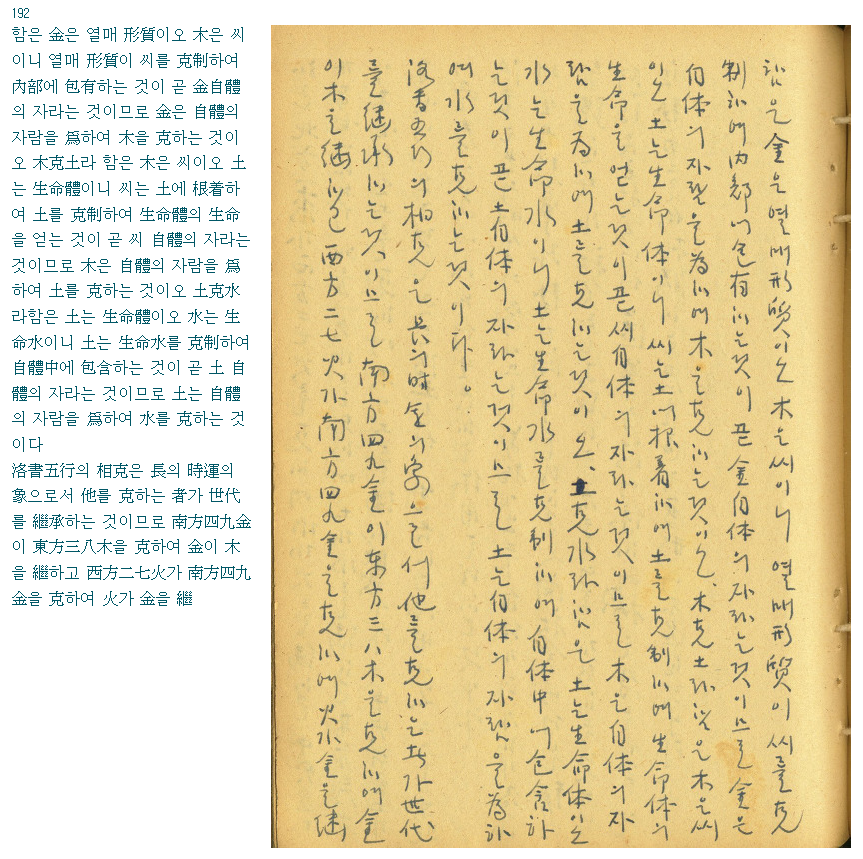 192
함은 金은 열매 形質이오 木은 씨
이니 열매 形質이 씨를 克制하여
內部에 包有하는 것이 곧 金自體
의 자라는 것이므로 金은 自體의
자람을 爲하여 木을 克하는 것이
오 木克土라 함은 木은 씨이오 土
는 生命體이니 씨는 土에 根着하
여 土를 克制하여 生命體의 生命
을 얻는 것이 곧 씨 自體의 자라는
것이므로 木은 自體의 자람을 爲
하여 土를 克하는 것이오 土克水
라함은 土는 生命體이오 水는 生
命水이니 土는 生命水를 克制하여
自體中에 包含하는 것이 곧 土 自
體의 자라는 것이므로 土는 自體
의 자람을 爲하여 水를 克하는 것
이다
洛書五行의 相克은 長의 時運의
象으로서 他를 克하는 者가 世代
를 繼承하는 것이므로 南方四九金
이 東方三八木을 克하여 金이 木
을 繼하고 西方二七火가 南方四九
金을 克하여 火가 金을 繼
함은 金은 열매形質이오 木은 씨이니 열매形質이 씨를 克
制하여 内部에 包有하는 것이 곧 金自体의 자라는 것이므로 金은
自体의 자람을 為하여 木을 克하는 것이오, 木克土라 함은 木은 씨
이오 土는 生命体이니 씨는 土에 根着하여 土를 克制하여 生命体의
生命을 얻는 것이 곧 씨 自体의 자라는 것이므로 木은 自体의 자
람을 為하여 土를 克하는 것이오, 土克水라 함은 土는 生命体이오
水는 生命水이니 土는 生命水를 克制하여 自体中에 包含하
는 것이 곧 土自体의 자라는 것이므로 土는 自体의 자람을 為하
여 水를 克하는 것이다。
洛書五行의 相克은 長의 時 의 象으로서 他를 克하는 者가 世代
를 継承하는 것이므로 南方四九金이 东方三八木을 克하여 金
이 木을 継하고 西方二七火가 南方四九金을 克하여 火가 金을 継